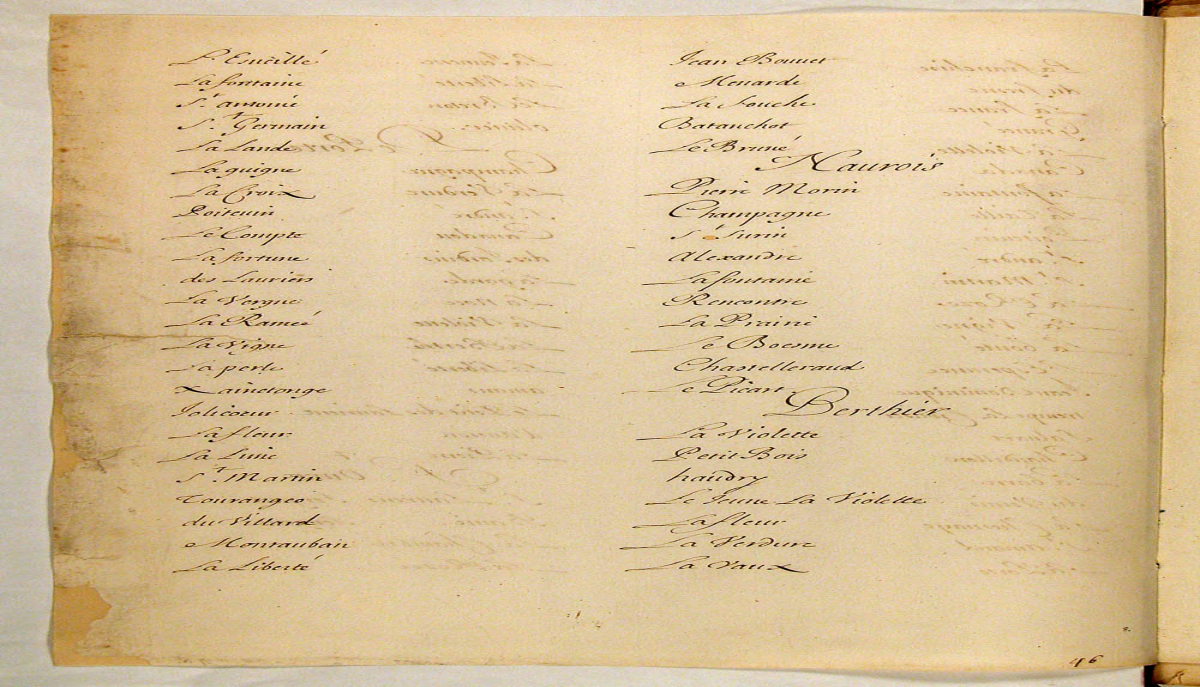 L'Esueillé
La fontaine
St. antoine
St. Germain
La Lande
La guigne
La Croix
Poiteuin
Le Compte
La fortune
des Lauriers
La Vergne
La Rameé
La Vigne
La perle
Xainctonge
Jolicoeur
La fleur
La Lune
St. Martin
Tourangeo
du Villard
Montauban
La Liberté
Jean Bouuet
Menarde
La Touche
Batanchot
Le Bruné
Naurois
Pierre Morin
Champagne
St. Surin
Alexandre
La fontaine
Rencontre
La Prairie
Le Boesme
Chastelleraud
Le Picart
Berthier
La Violette
Petit Bois
haudry
Le Jeune La Violette
La fleur
La Verdure
La Vaux